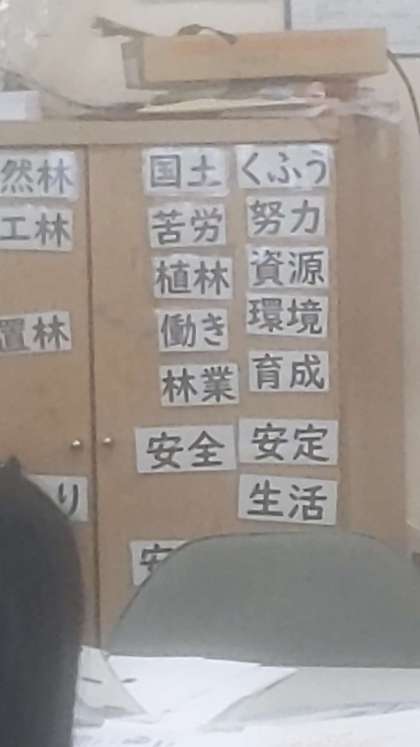 くふう
努力
資源
環境
育成
安定
生活
国土
苦労
植林
働き
林業
安全
安
然林
工林
置林
り